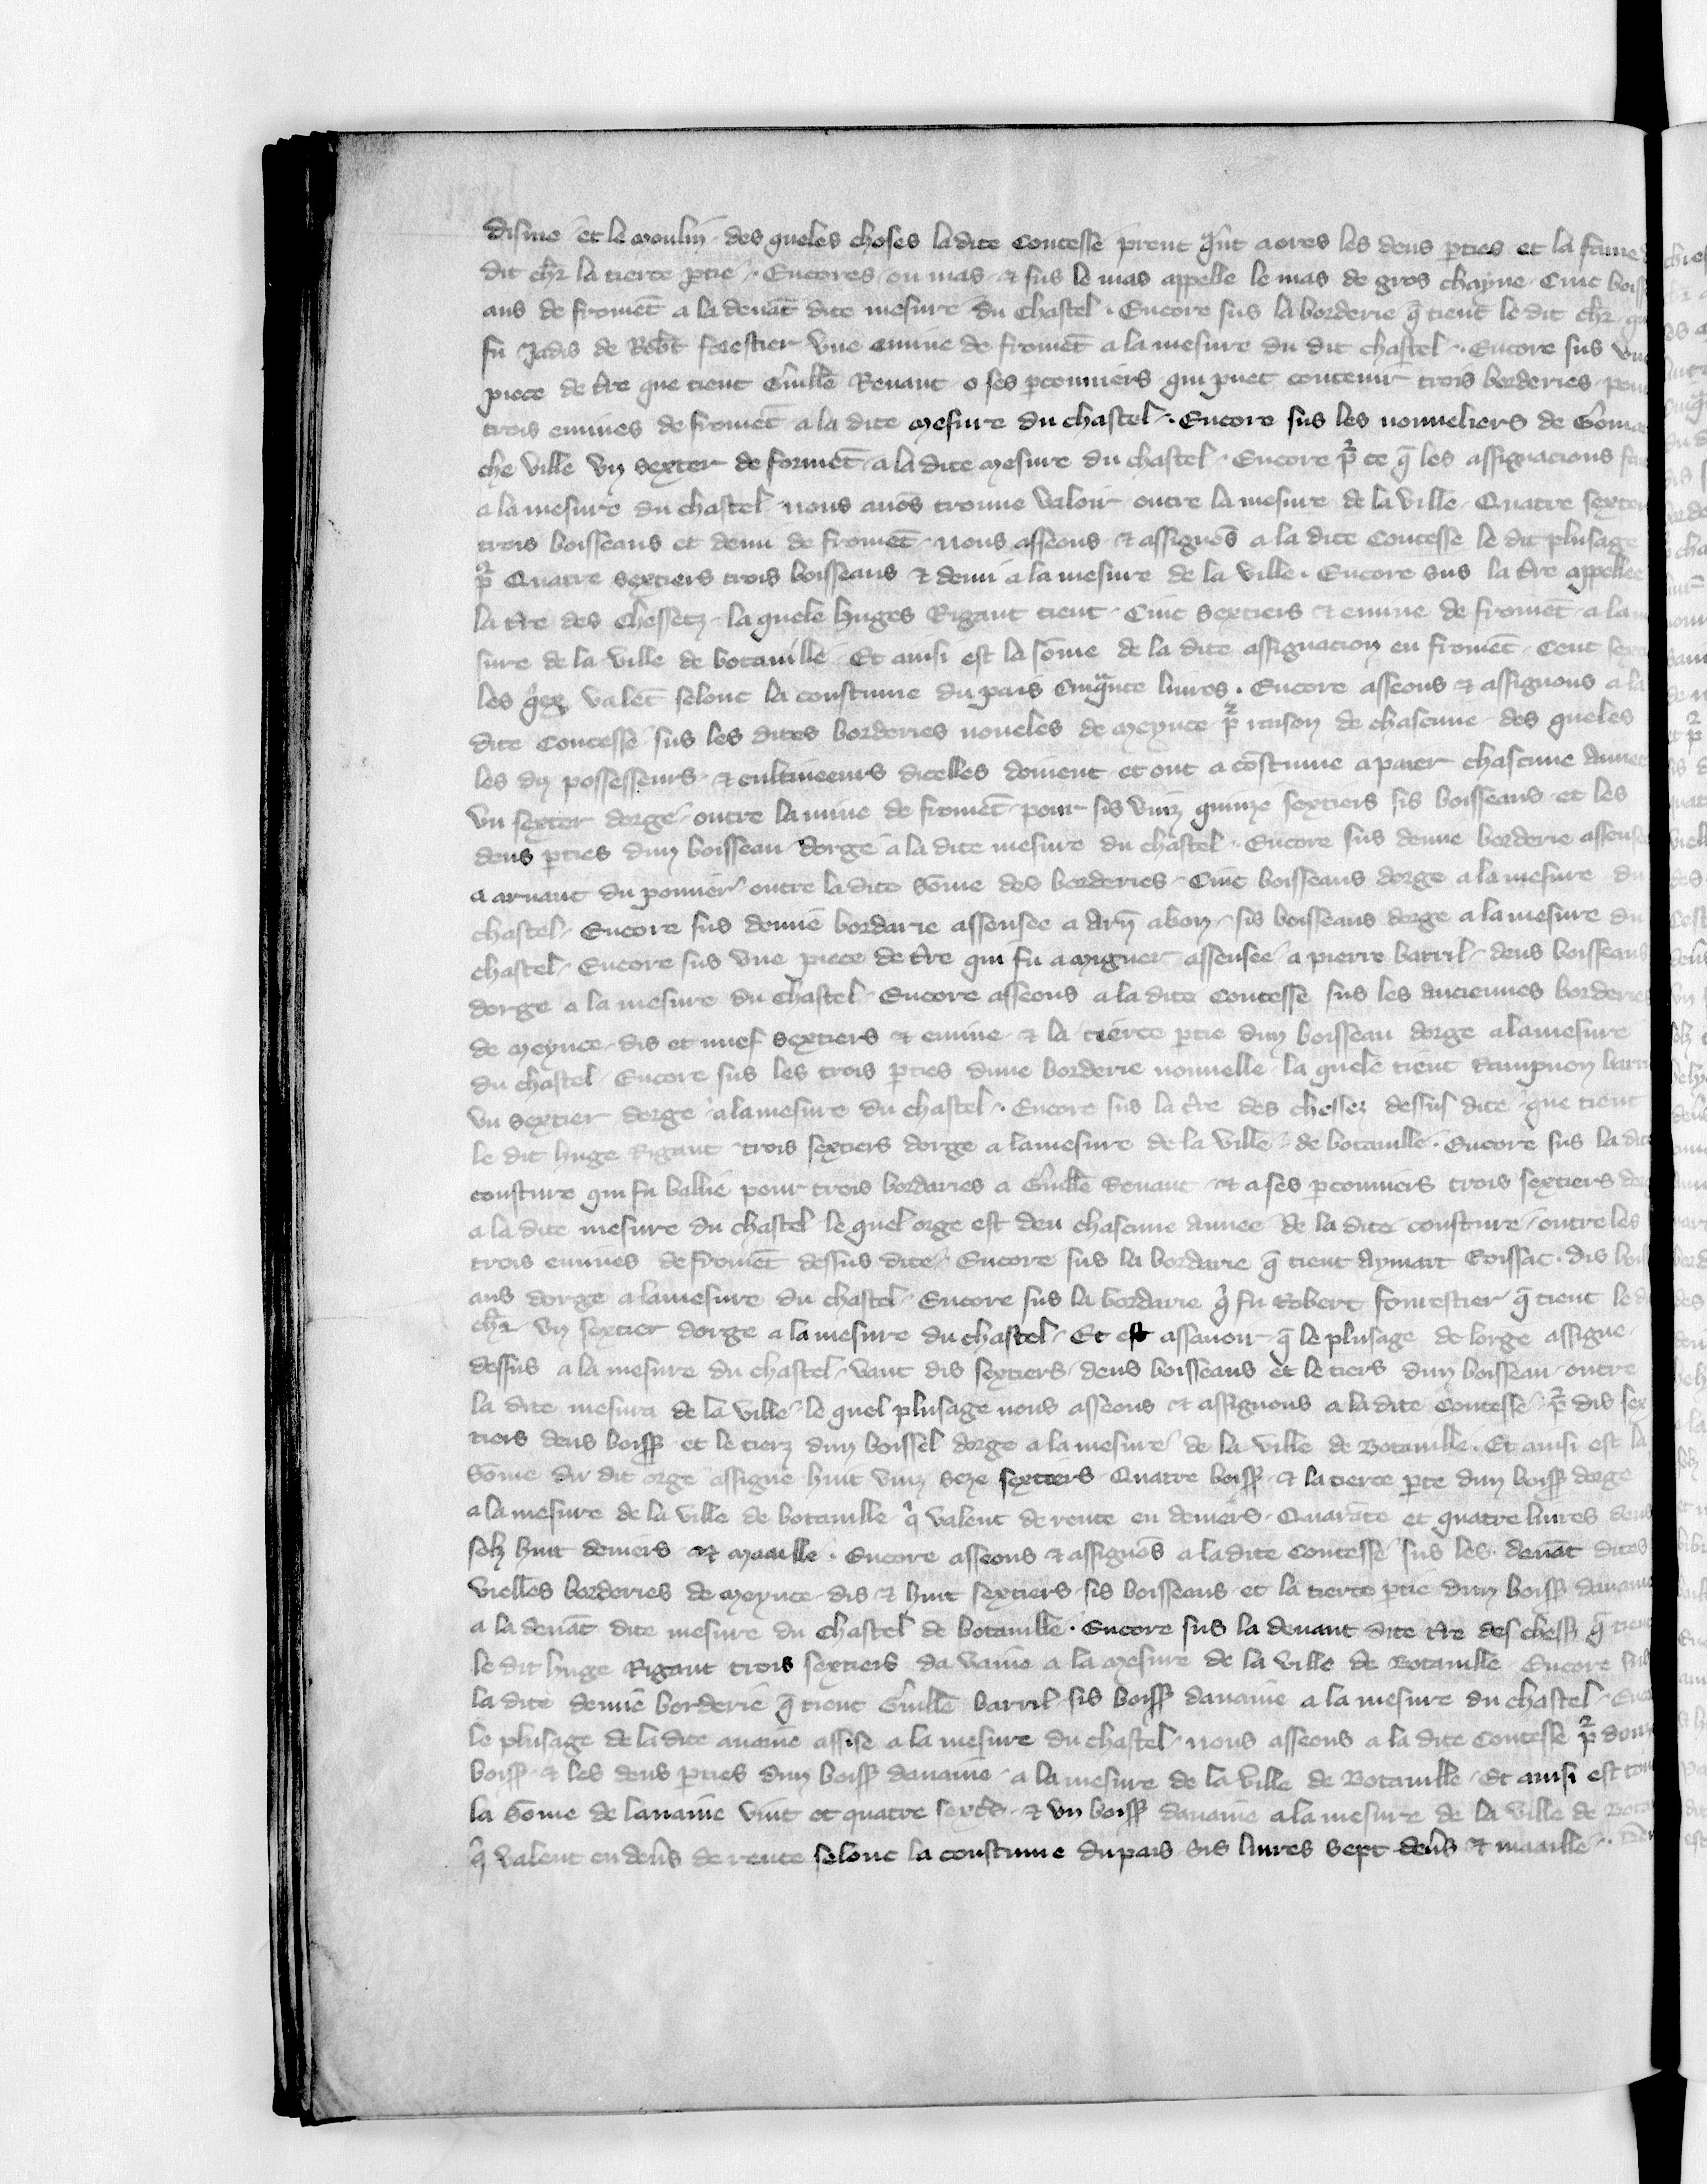 disme et le moulin des queles choses la dite Contesse prent quãt a ores les deus p̃ties et la fame
dit ch̃r la tierce p̃tie. Encores ou mas et sus le mas appelle le mas de gros chayne Cinc boiss
aus de fromẽt a la deuãt dite mesure du Chastel. Encore sus la borderie q̃ tient le dit ch̃r
fu Jadis de Rob̃t forestier vne emine de fromẽt a la mesure du dit chastel. Encore sus vne
piece de t̃re que tient Guill̃e Renaut o ses p̃conniers qui puet contenir trois borderies pour
trois emines de fromẽt a la dite mesure du chastel. Encore sus les nouueliers de Goma
che ville vn sexter de formẽt a la dite mesure du chastel. Encore p̃r ce q̃ les assignacions
a la mesure du chastel nous auõs trouue valoir outre la mesure de la ville Quatre sextiers
trois boisseaus et demi de fromẽt nous asseons et assignõs a la dite Contesse le dit plusage
p̃r Quatre sextiers trois boisseaus et demi a la mesure de la ville. Encore sus la t̃re appellee
la t̃re des Chessetz la quele huges Rigaut tient Cinc sextiers et emine de fromẽt a la
sure de la ville de botauille Et ainsi est la sõme de la dite assignacion en fromẽt Cent sext
les q̃ex valẽt selonc la coustume du pais Cinquãte liures. Encore asseons et assignons a la
dite Contesse sus les dites borderies noueles de meynce p̃r raison de chascune des queles
les diz possesseurs et cultiueeurs dicelles doiuent et ont acõstume a paier chascune annee
vn sexter dorge outre lamine de fromẽt pour sis vinz quinze sextiers sis boisseaus et les
deus p̃ties dun boisseau dorge a la dite mesure du chastel. Encore sus demie borderie assensee
a arnaut du pommier outre la dite sõme des borderies Cinc boisseaus dorge a la mesure du
chastel Encore sus demie bordarie assensee a Arñ abon sis boisseaus dorge a la mesure du
chastel Encore sus vne piece de t̃re qui fu a miguer assensee a pierre barril deus boisseaus
dorge a la mesure du chastel Encore asseons a la dite Contesse sus les anciennes borderies
de meynce dis et nuef sextiers et emine et la tierce p̃tie dun boisseau dorge a la mesure
du chastel Encore sus les trois p̃ties dune borderie nouuelle la quele tient Rampnon barri
vn sextier dorge a la mesure du chastel. Encore sus la t̃re des chessez dessus dite que tient
le dit huge Rigaut trois sextiers dorge a la mesure de la ville de botauille. Encore sus la dite
cousture qui fu ballie pour trois bordaries a Guill̃e Renaut et a ses p̃conniers trois sextiers dor
a la dite mesure du chastel le quel orge est deu chascune annee de la dite cousture outre les
trois emines de fromẽt dessus dite. Encore sus la bordarie q̃ tient Aymart Roissac. dis bois
aus dorge a la mesure du chastel Encore sus la bordarie q̃ fu Robert forrestier q̃ tient le d
ch̃r vn sextier dorge a la mesure du chastel Et est assauoir q̃ le plusage de lorge assigne
dessus a la mesure du chastel vaut dis sextiers deus boisseaus et le tiers dun boisseau outre
la dite mesura de la ville le quel plusage nous asseons et assignons a la dite Contesse p̃r dis sex
tiers deus boiss̃ et le tierz dun boissel dorge a la mesure de la ville de Botauille. Et ainsi est la
sõme du dit orge assigne huit vinz seze sextiers Quatre boiss̃ et la tierce p̃te dun boiss̃ dorge
a la mesure de la ville de botauille q̃ valent de rente en deniers. Quarãte et quatre liures deus
solz huit deniers et maaille. Encore asseons et assignõs a la dite Contesse sus les deuãt dites
vielles borderies de meynce dis et huit sextiers sis boisseaus et la tierce p̃tie dun boiss̃ dauaine
a la deuãt dite mesure du Chastel de botauille. Encore sus la deuant dite t̃re des chess̃ q̃ tient
le dit huge Rigaut trois sextiers da vaine a la mesure de la ville de Botauille Encore sus
la dite demie borderie q̃ tient Guill̃e barril sis boiss̃ dauaine a la mesure du chastel
le plusage de la dite auaine assise a la mesure du chastel nous asseons a la dite Contesse p̃r
boiss̃ et les deus p̃ties dun boiss̃ dauaine a la mesure de la ville de Botauille. Et ainsi est
la sõme de lauaine vint et quatre sext̃s et vn boiss̃ dauaine a la mesure de la ville de Bota
q̃ valent en deñs de rente selonc la coustume du pais sis liures sept deñs et maaille.